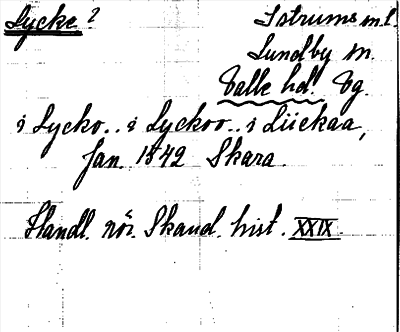 Lycke ?
Istrums m.fl.
Lundby sn.
Valle hd. Vg.
i Lycko.. i Lyckoo.. i Lüekaa,
Jan. 1542 Skara.
Handl. rör. Skand. hist. XXIX.